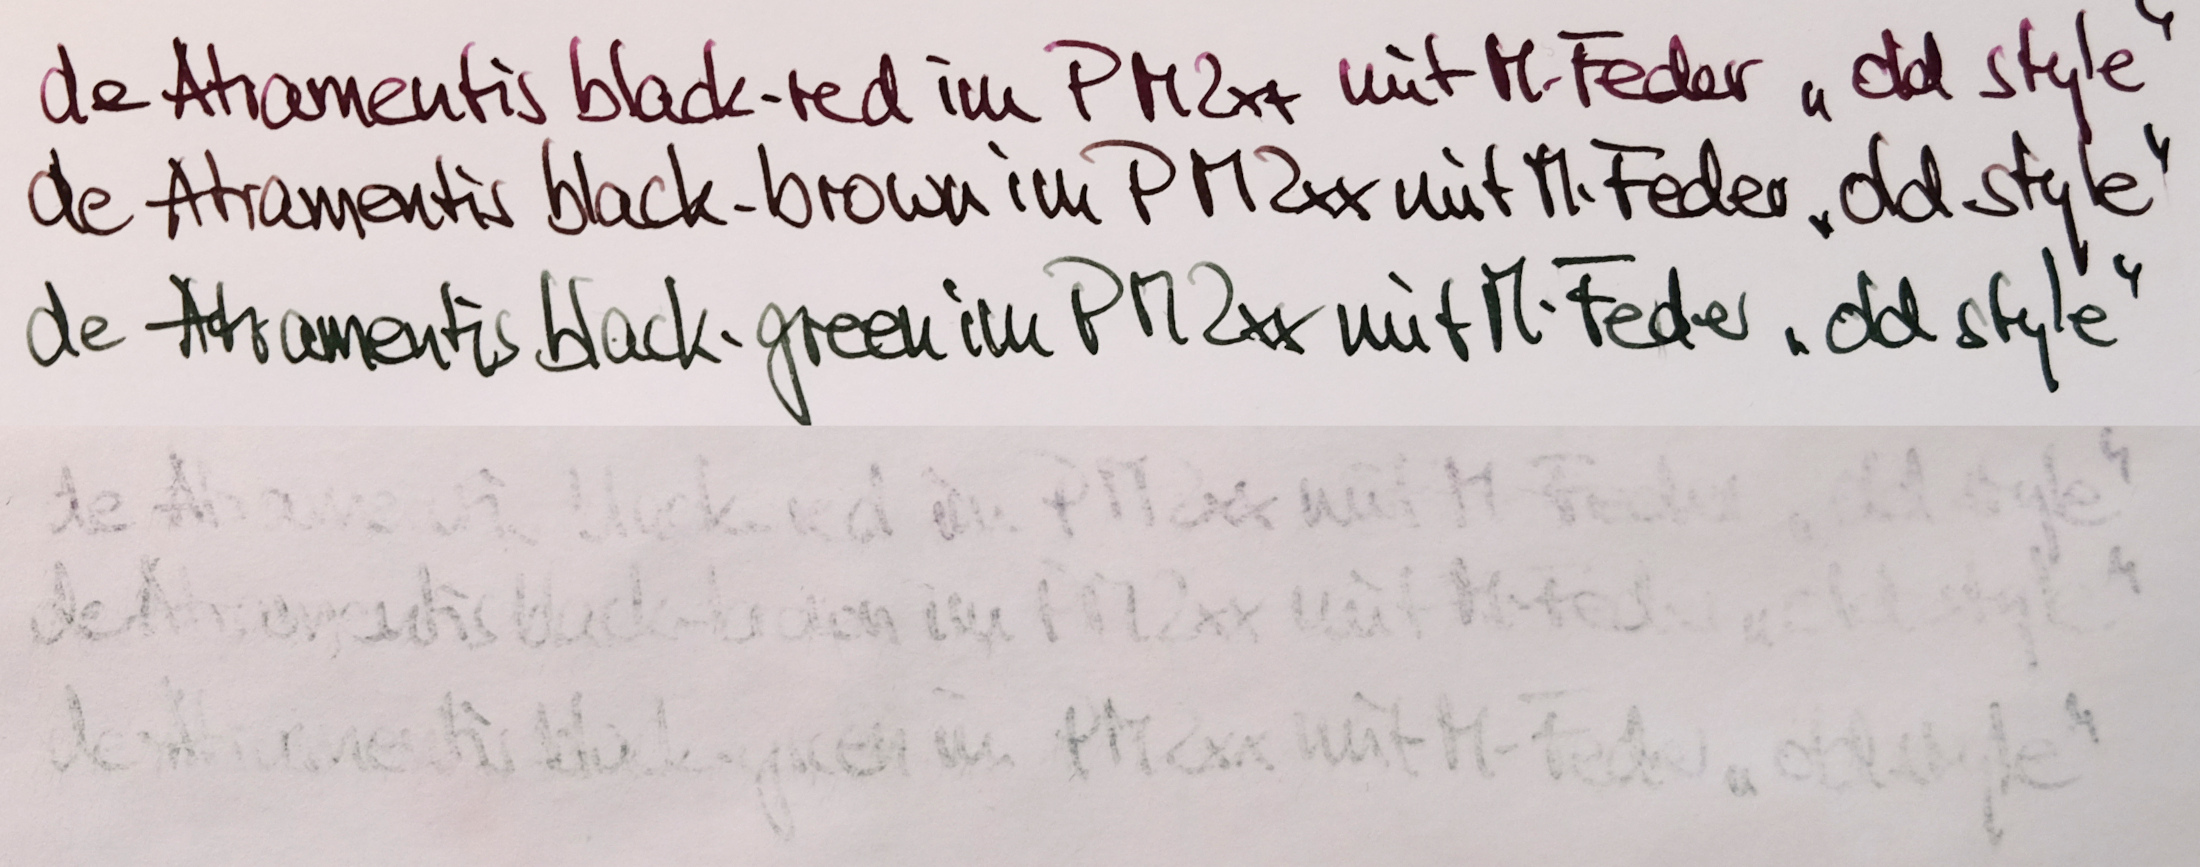 de Atramentis black-red im PM2xx mit M-Feder „old style“
de Atramentis black-brown im PM2xx mit M-Feder „old style“
de Atramentis black-green im PM2xx mit M-Feder „old style“
de black-red im PM2xx mit M Feder „old style“
de Atramentis black-brown im PM2xx mit M-Feder „old style“
de Atramentis black-green im PM2xx mit M-Feder „old style“